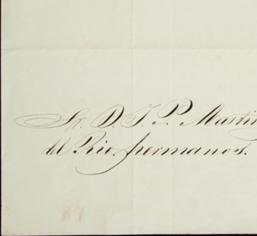 Sr. D. J. P. Martin
del Rio hermanos.